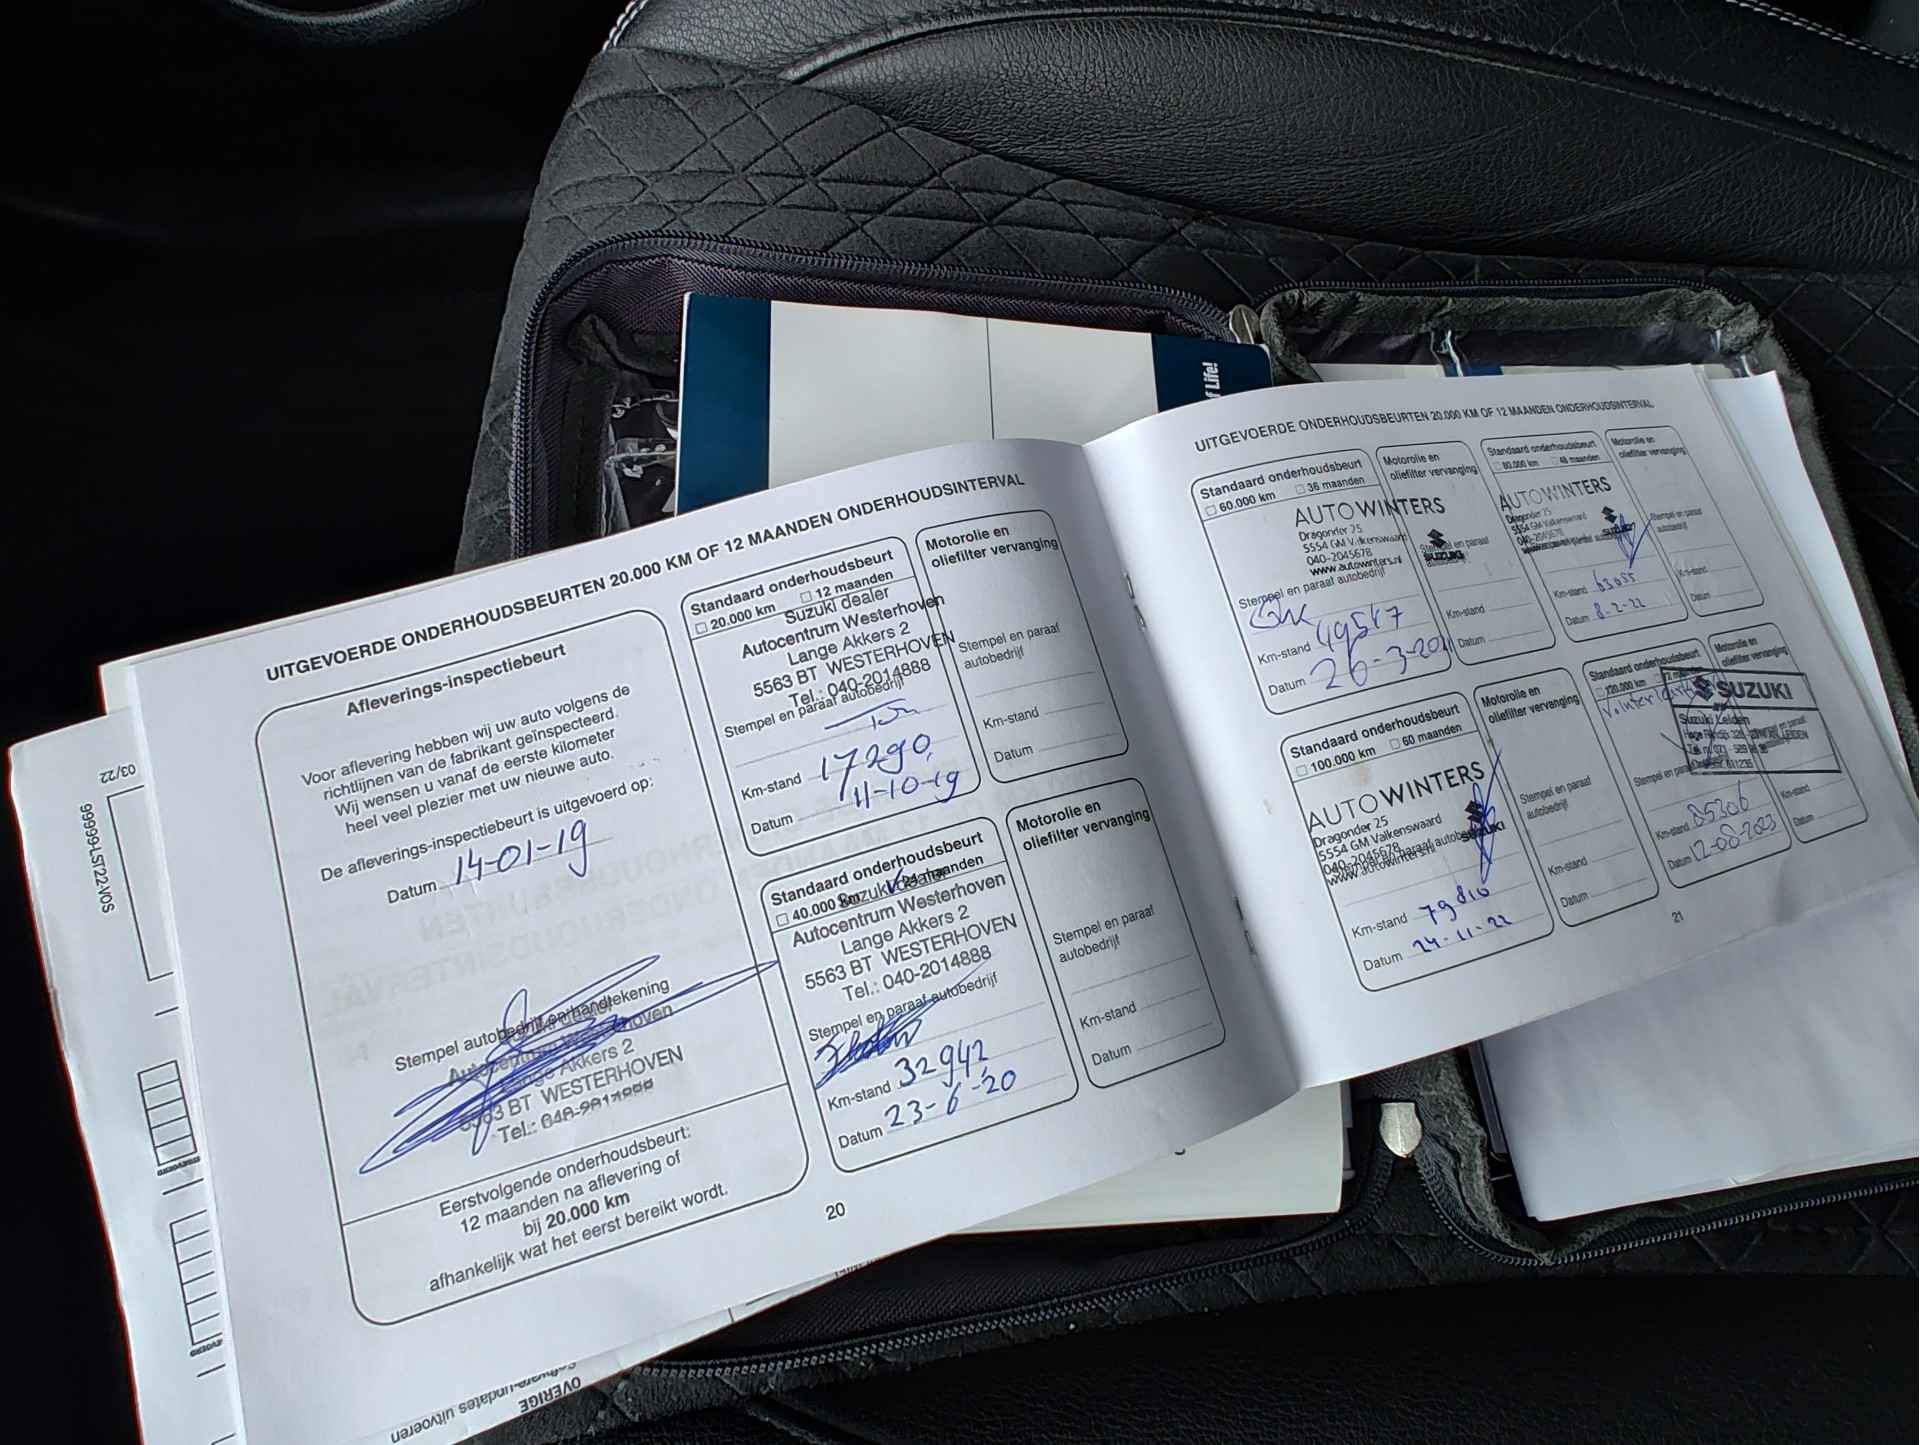 f Life!
UITGEVOERDE ONDERHOUDSBEURTEN 20.000 KM OF 12 MAANDEN ONDERHOUDSINTERVAL
Afleverings-inspectiebeurt
Voor aflevering hebben wij uw auto volgens de
richtlijnen van de fabrikant geïnspecteerd.
Wij wensen u vanaf de eerste kilometer
heel veel plezier met uw nieuwe auto.
De afleverings-inspectiebeurt is uitgevoerd op:
Datum 14-01-19
Stempel autobedrijf en handtekening
Autocentrum Westerhoven
Lange Akkers 2
5563 BT WESTERHOVEN
Tel.: 040-2014888
Eerstvolgende onderhoudsbeurt:
12 maanden na aflevering of
bij 20.000 km
afhankelijk wat het eerst bereikt wordt.
Standaard onderhoudsbeurt
20.000 km 12 maanden
Suzuki dealer
Autocentrum Westerhoven
Lange Akkers 2
5563 BT WESTERHOVEN
Tel.: 040-2014888
Stempel en paraaf autobedrijf
Km-stand 17290
Datum 11-10-19
Motorolie en
oliefilter vervanging
Stempel en paraaf
autobedrijf
Km-stand
Datum
Standaard onderhoudsbeurt
40.000 km 24 maanden
Suzuki dealer
Autocentrum Westerhoven
Lange Akkers 2
5563 BT WESTERHOVEN
Tel.: 040-2014888
Stempel en paraaf autobedrijf
Km-stand 32942
Datum 23-6-20
Motorolie en
oliefilter vervanging
Stempel en paraaf
autobedrijf
Km-stand
Datum
20
UITGEVOERDE ONDERHOUDSBEURTEN 20.000 KM OF 12 MAANDEN ONDERHOUDSINTERVAL
Standaard onderhoudsbeurt
60.000 km 36 maanden
AUTOWINTERS
Dragonder 25
5554 GM Valkenswaard
040-2045678
www.autowinters.nl
SUZUKI
Stempel en paraaf autobedrijf
Km-stand 49517
Datum 26-3-2021
Motorolie en
oliefilter vervanging
Stempel en paraaf
autobedrijf
Km-stand
Datum
Standaard onderhoudsbeurt
80.000 km 48 maanden
AUTOWINTERS
Dragonder 25
5554 GM Valkenswaard
040-2045678
SUZUKI
Km-stand 63055
Datum 8-2-22
Motorolie en
oliefilter vervanging
Stempel en paraaf
autobedrijf
Km-stand
Datum
Standaard onderhoudsbeurt
100.000 km 60 maanden
AUTOWINTERS
Dragonder 25
5554 GM Valkenswaard
040-2045678
www.autowinters.nl
SUZUKI
Stempel en paraaf autobedrijf
Km-stand 79810
Datum 24-11-22
Motorolie en
oliefilter vervanging
Stempel en paraaf
autobedrijf
Km-stand
Datum
Standaard onderhoudsbeurt
120.000 km 72 maanden
SUZUKI
Suzuki Leiden
Stempel en paraaf
Km-stand 85306
Datum 12-08-2023
Motorolie en
oliefilter vervanging
Km-stand
Datum
21
03/22
99999-LST22-VOS
OVERIGE
Software-updates uitvoeren